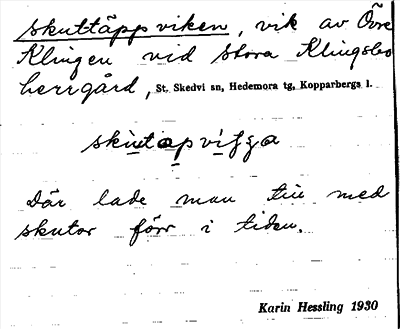 Skuttäppviken, vik av Övre
Klingen vid Stora Klingsbo
herrgård, St. Skedvi sn, Hedemora tg, Kopparbergs l.
skutapviga
Där lade man till med
skutor förr i tiden.
Karin Hessling 1930